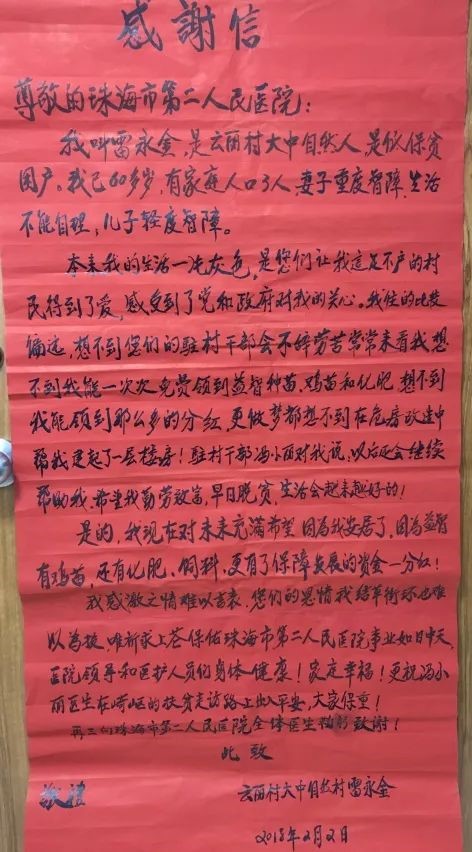 感謝信
尊敬的珠海市第二人民医院：
我叫雷永金，是云丽村大中自然人，是低保贫
困户。我已60多岁，有家庭人口3人，妻子重度智障，生活
不能自理，儿子轻度智障。
本来我的生活一片灰色，是您们让我这足不户的村
民得到了爱，感受到了党和政府对我的关心。我住的比较
偏远，想不到您们的驻村干部会不辞劳苦常常来看我，想
不到我能一次次免费领到益智种苗、鸡苗和化肥，想不到
我能领到那么多的分红，更做梦都想不到在危房改建中
帮我建起了一层楼房！驻村干部冯小丽对我说，以后还会继续
帮助我，希望我勤劳致富，早日脱贫，生活会越来越好的！
是的，我现在对未来充满希望，因为我安居了，因为益智
有鸡苗，还有化肥、饲料，更有了保障发展的资金一分红！
我感激之情难以言表，您们的恩情我结草衔环也难
以为报，唯祈求上苍保佑珠海市第二人民医院事业如日中天，
医院领导和医护人员们身体健康！家庭幸福！更祝冯小
丽医生在崎岖的扶贫走访路上出入平安，大家保重！
再三向珠海市第二人民医院全体医生 致谢！
此致
敬禮
云丽村大中自然村雷永金
2018年2月2日